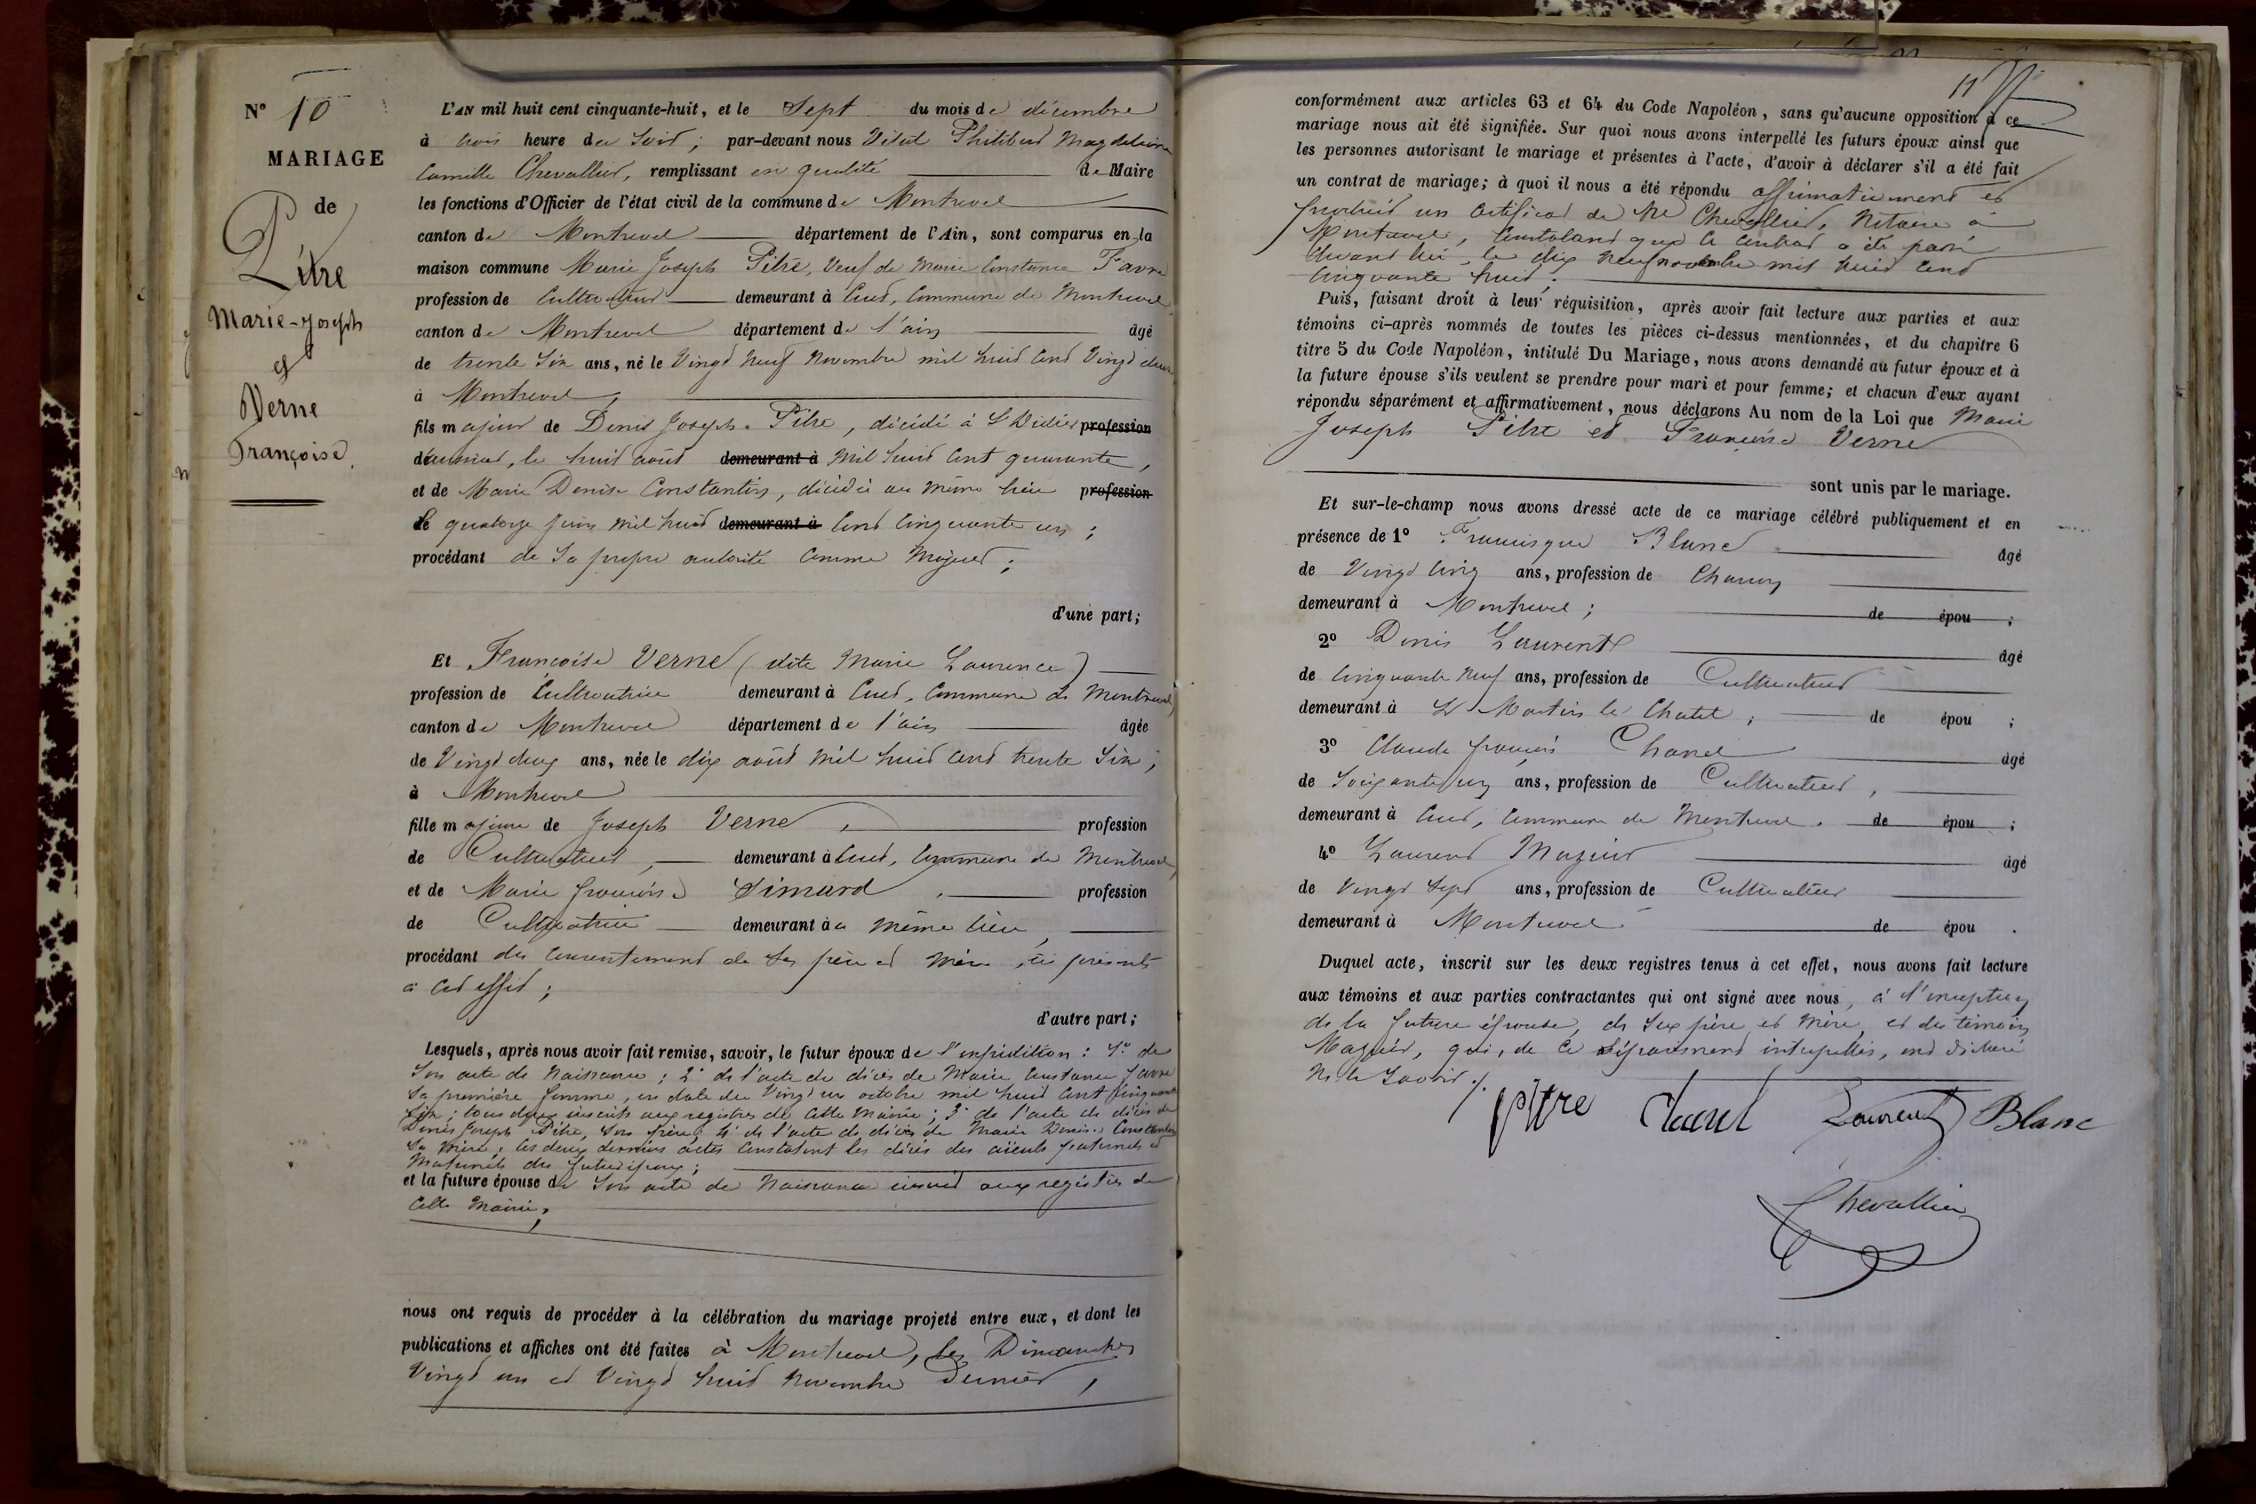 N° 10
MARIAGE
de
Pitre
Marie-Joseph
et
Verne
Françoise
L'AN mil huit cent cinquante-huit, et le Sept du mois de décembre
à trois heure du Soir ; par-devant nous Vital Philibert Magdeleine
Camille Chevallier, remplissant en qualité de Maire
les fonctions d'Officier de l'état civil de la commune de Montrevel
canton de Montrevel département de l'Ain, sont comparus en la
maison commune Marie Joseph Pitre, Veuf de Marie Constance Favre
profession de Cultivateur demeurant à Cuet, Commune de Montrevel
canton de Montrevel département de l'ain âgé
de trente Six ans, né le Vingt Neuf Novembre mil huit Cent Vingt deux
à Montrevel,
fils majeur de Denis Joseph Pitre, décédé à St Didier profession
d'aussiat, le huit août demeurant à Mil huit Cent quarante,
et de Marie Denise Constantin, décédée au même lieu profession
de quatorze Juin Mil huit demeurant à Cent Cinquante un ;
procédant de Sa propre autorité Comme Majeur ;
d'une part ;
Et Françoise Verne (dite Marie Laurence)
profession de Cultivatrice demeurant à Cuet, Commune de Montrevel,
canton de Montrevel département de l'ain âgée
de Vingt deux ans, née le dix août Mil huit Cent trente Six ;
à Montrevel
fille majeure de Joseph Verne, profession
de Cultivateur, demeurant à Cuet, Commune de Montrevel,
et de Marie françoise Simard, profession
de Cultivatrice demeurant àu même lieu,
procédant du Consentement de Ses père et Mère, ici présents
à Cet effet ;
d'autre part ;
Lesquels, après nous avoir fait remise, savoir, le futur époux de l'expédition : 1° de
Son acte de Naissance ; 2° de l'acte de décès de Marie Constance Favre
Sa première femme, en date du Vingt un octobre mil huit Cent Cinquante
Six ; tous deux inscrits aux registres de Cette Mairie ; 3° de l'acte de décès de
Denis Joseph Pitre, Son père ; 4° de l'acte de décès de Marie Denise Constantin
Sa Mère ; les deux derniers actes Constatent les décès des aïeuls paternels et
Maternels du futur époux ;
et la future épouse de Son acte de Naissance inscrit aux registres de
Cette Mairie ;
nous ont requis de procéder à la célébration du mariage projeté entre eux, et dont les
publications et affiches ont été faites à Montrevel, les Dimanches
Vingt un et Vingt huit Novembre Dernier,
11
conformément aux articles 63 et 64 du Code Napoléon, sans qu'aucune opposition à ce
mariage nous ait été signifiée. Sur quoi nous avons interpellé les futurs époux ainsi que
les personnes autorisant le mariage et présentes à l'acte, d'avoir à déclarer s'il a été fait
un contrat de mariage ; à quoi il nous a été répondu affirmativement et
produit un Certificat de Me Chevallier, Notaire à
Montrevel, Constatant que le Contrat a été passé
devant lui le dix neuf novembre mil huit Cent
Cinquante huit.
Puis, faisant droit à leur réquisition, après avoir fait lecture aux parties et aux
témoins ci-après nommés de toutes les pièces ci-dessus mentionnées, et du chapitre 6
titre 5 du Code Napoléon, intitulé Du Mariage, nous avons demandé au futur époux et à
la future épouse s'ils veulent se prendre pour mari et pour femme ; et chacun d'eux ayant
répondu séparément et affirmativement, nous déclarons Au nom de la Loi que Marie
Joseph Pitre et Françoise Verne
sont unis par le mariage.
Et sur-le-champ nous avons dressé acte de ce mariage célébré publiquement et en
présence de 1° Francisque Blanc âgé
de Vingt Cinq ans, profession de Charron
demeurant à Montrevel ; de épou ;
2° Denis Laurent âgé
de Cinquante Neuf ans, profession de Cultivateur
demeurant à St Martin le Chatel, de épou ;
3° Claude françois Chanel âgé
de Soixante un ans, profession de Cultivateur,
demeurant à Cuet, Commune de Montrevel. de épou ;
4° Laurent Mazuir âgé
de Vingt Sept ans, profession de Cultivateur
demeurant à Montrevel de épou .
Duquel acte, inscrit sur les deux registres tenus à cet effet, nous avons fait lecture
aux témoins et aux parties contractantes qui ont signé avec nous, à l'exception
de la future épouse, de Ses père et Mère, et du témoin
Mazuir, qui, de Ce Séparément interpellés, ont déclaré
Ne le Savoir ./.
Pitre Chanel Laurent Blanc
Chevallier